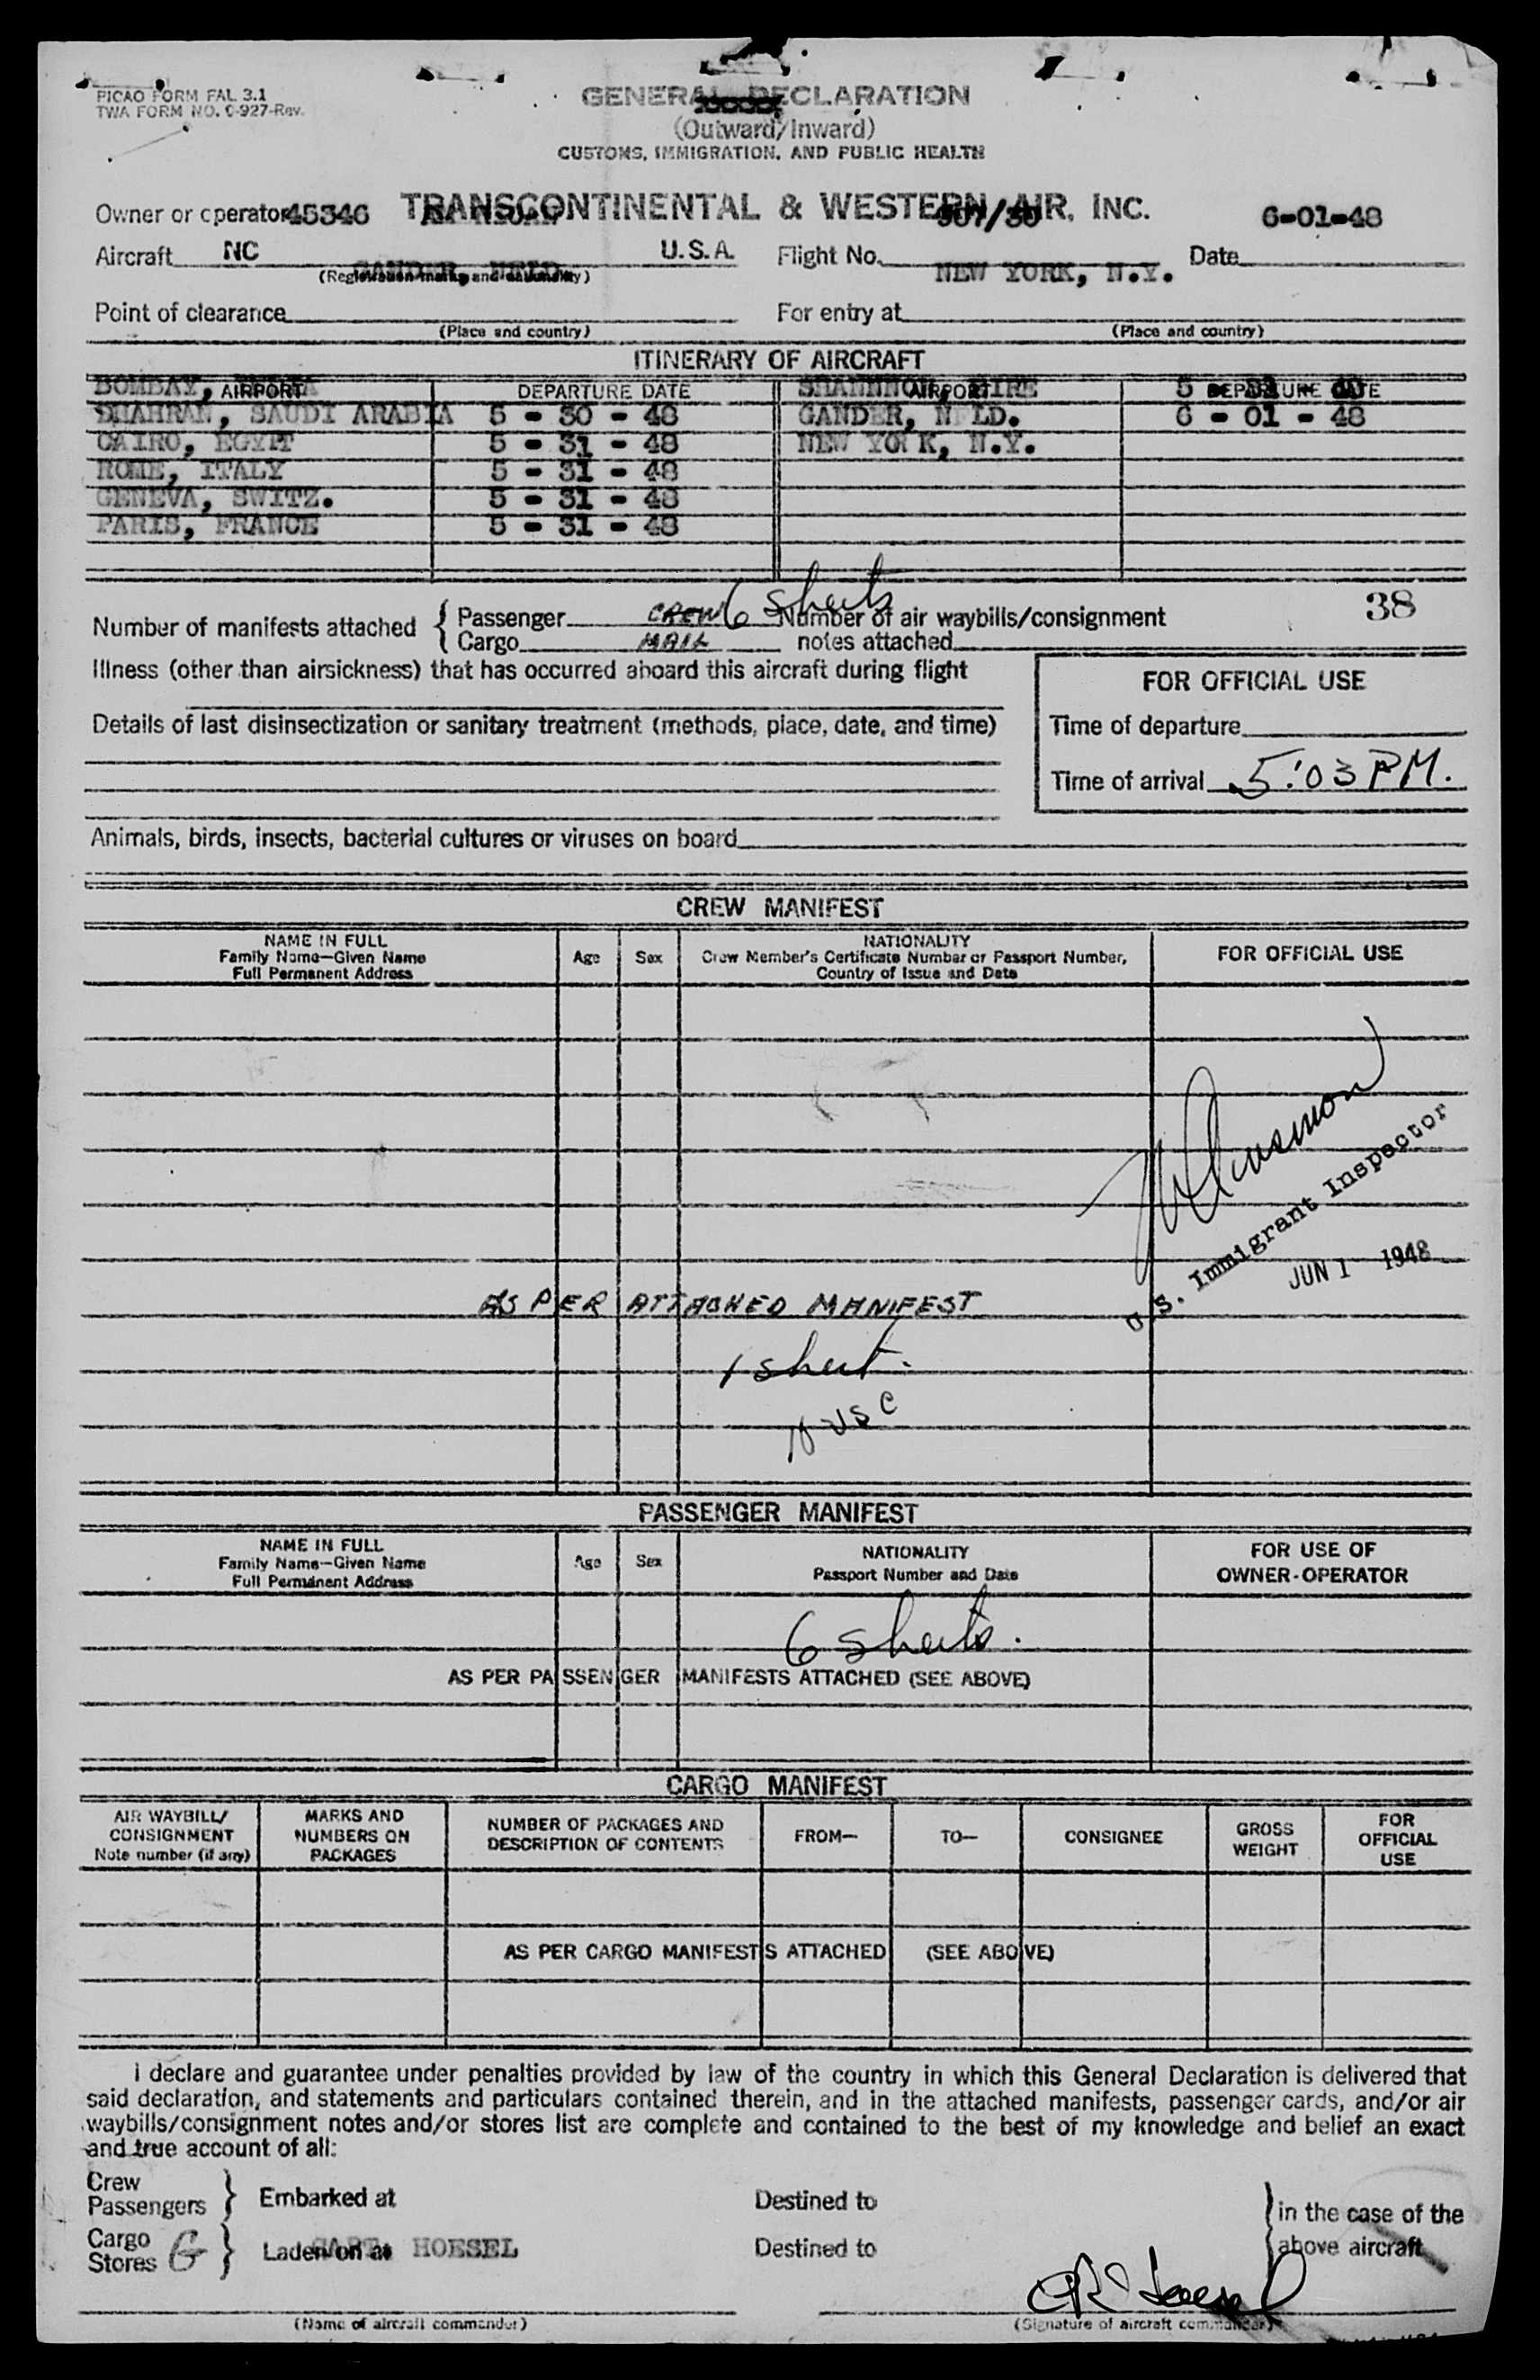 PICAO FORM FAL 3.1
TWA FORM NO. 0-927-Rev.
GENERAL DECLARATION
(Outward/Inward)
CUSTOMS, IMMIGRATION, AND PUBLIC HEALTH
Owner or operator 45346 TRANSCONTINENTAL & WESTERN AIR, INC. 6-01-48
Aircraft NC U.S.A. Flight No. Date
(Registration marks and nationality) NEW YORK, N.Y.
Point of clearance For entry at
(Place and country) (Place and country)
ITINERARY OF AIRCRAFT
AIRPORT DEPARTURE DATE AIRPORT DEPARTURE DATE
BOMBAY, SHANNON, EIRE 5
DHAHRAN, SAUDI ARABIA 5 - 30 - 48 GANDER, NFLD. 6 - 01 - 48
CAIRO, EGYPT 5 - 31 - 48 NEW YORK, N.Y.
ROME, ITALY 5 - 31 - 48
GENEVA, SWITZ. 5 - 31 - 48
PARIS, FRANCE 5 - 31 - 48
Number of manifests attached { Passenger CREW 6 sheets Number of air waybills/consignment 38
Cargo MAIL notes attached
Illness (other than airsickness) that has occurred aboard this aircraft during flight
FOR OFFICIAL USE
Details of last disinsectization or sanitary treatment (methods, place, date, and time)
Time of departure
Time of arrival 5:03 PM.
Animals, birds, insects, bacterial cultures or viruses on board
CREW MANIFEST
NAME IN FULL
Family Name—Given Name
Full Permanent Address
Age Sex
NATIONALITY
Crew Member's Certificate Number or Passport Number,
Country of Issue and Date
FOR OFFICIAL USE
U.S. Immigrant Inspector
JUN 1 1948
AS PER ATTACHED MANIFEST
1 sheet.
10 USC
PASSENGER MANIFEST
NAME IN FULL
Family Name—Given Name
Full Permanent Address
Age Sex
NATIONALITY
Passport Number and Date
FOR USE OF
OWNER-OPERATOR
6 sheets.
AS PER PASSENGER MANIFESTS ATTACHED (SEE ABOVE)
CARGO MANIFEST
AIR WAYBILL/
CONSIGNMENT
Note number (if any)
MARKS AND
NUMBERS ON
PACKAGES
NUMBER OF PACKAGES AND
DESCRIPTION OF CONTENTS
FROM—
TO—
CONSIGNEE
GROSS
WEIGHT
FOR
OFFICIAL
USE
AS PER CARGO MANIFESTS ATTACHED (SEE ABOVE)
I declare and guarantee under penalties provided by law of the country in which this General Declaration is delivered that
said declaration, and statements and particulars contained therein, and in the attached manifests, passenger cards, and/or air
waybills/consignment notes and/or stores list are complete and contained to the best of my knowledge and belief an exact
and true account of all:
Crew
Passengers } Embarked at Destined to } in the case of the
Cargo
Stores G } Laden on at CAPT. HOESEL Destined to above aircraft
(Name of aircraft commander) (Signature of aircraft commander)